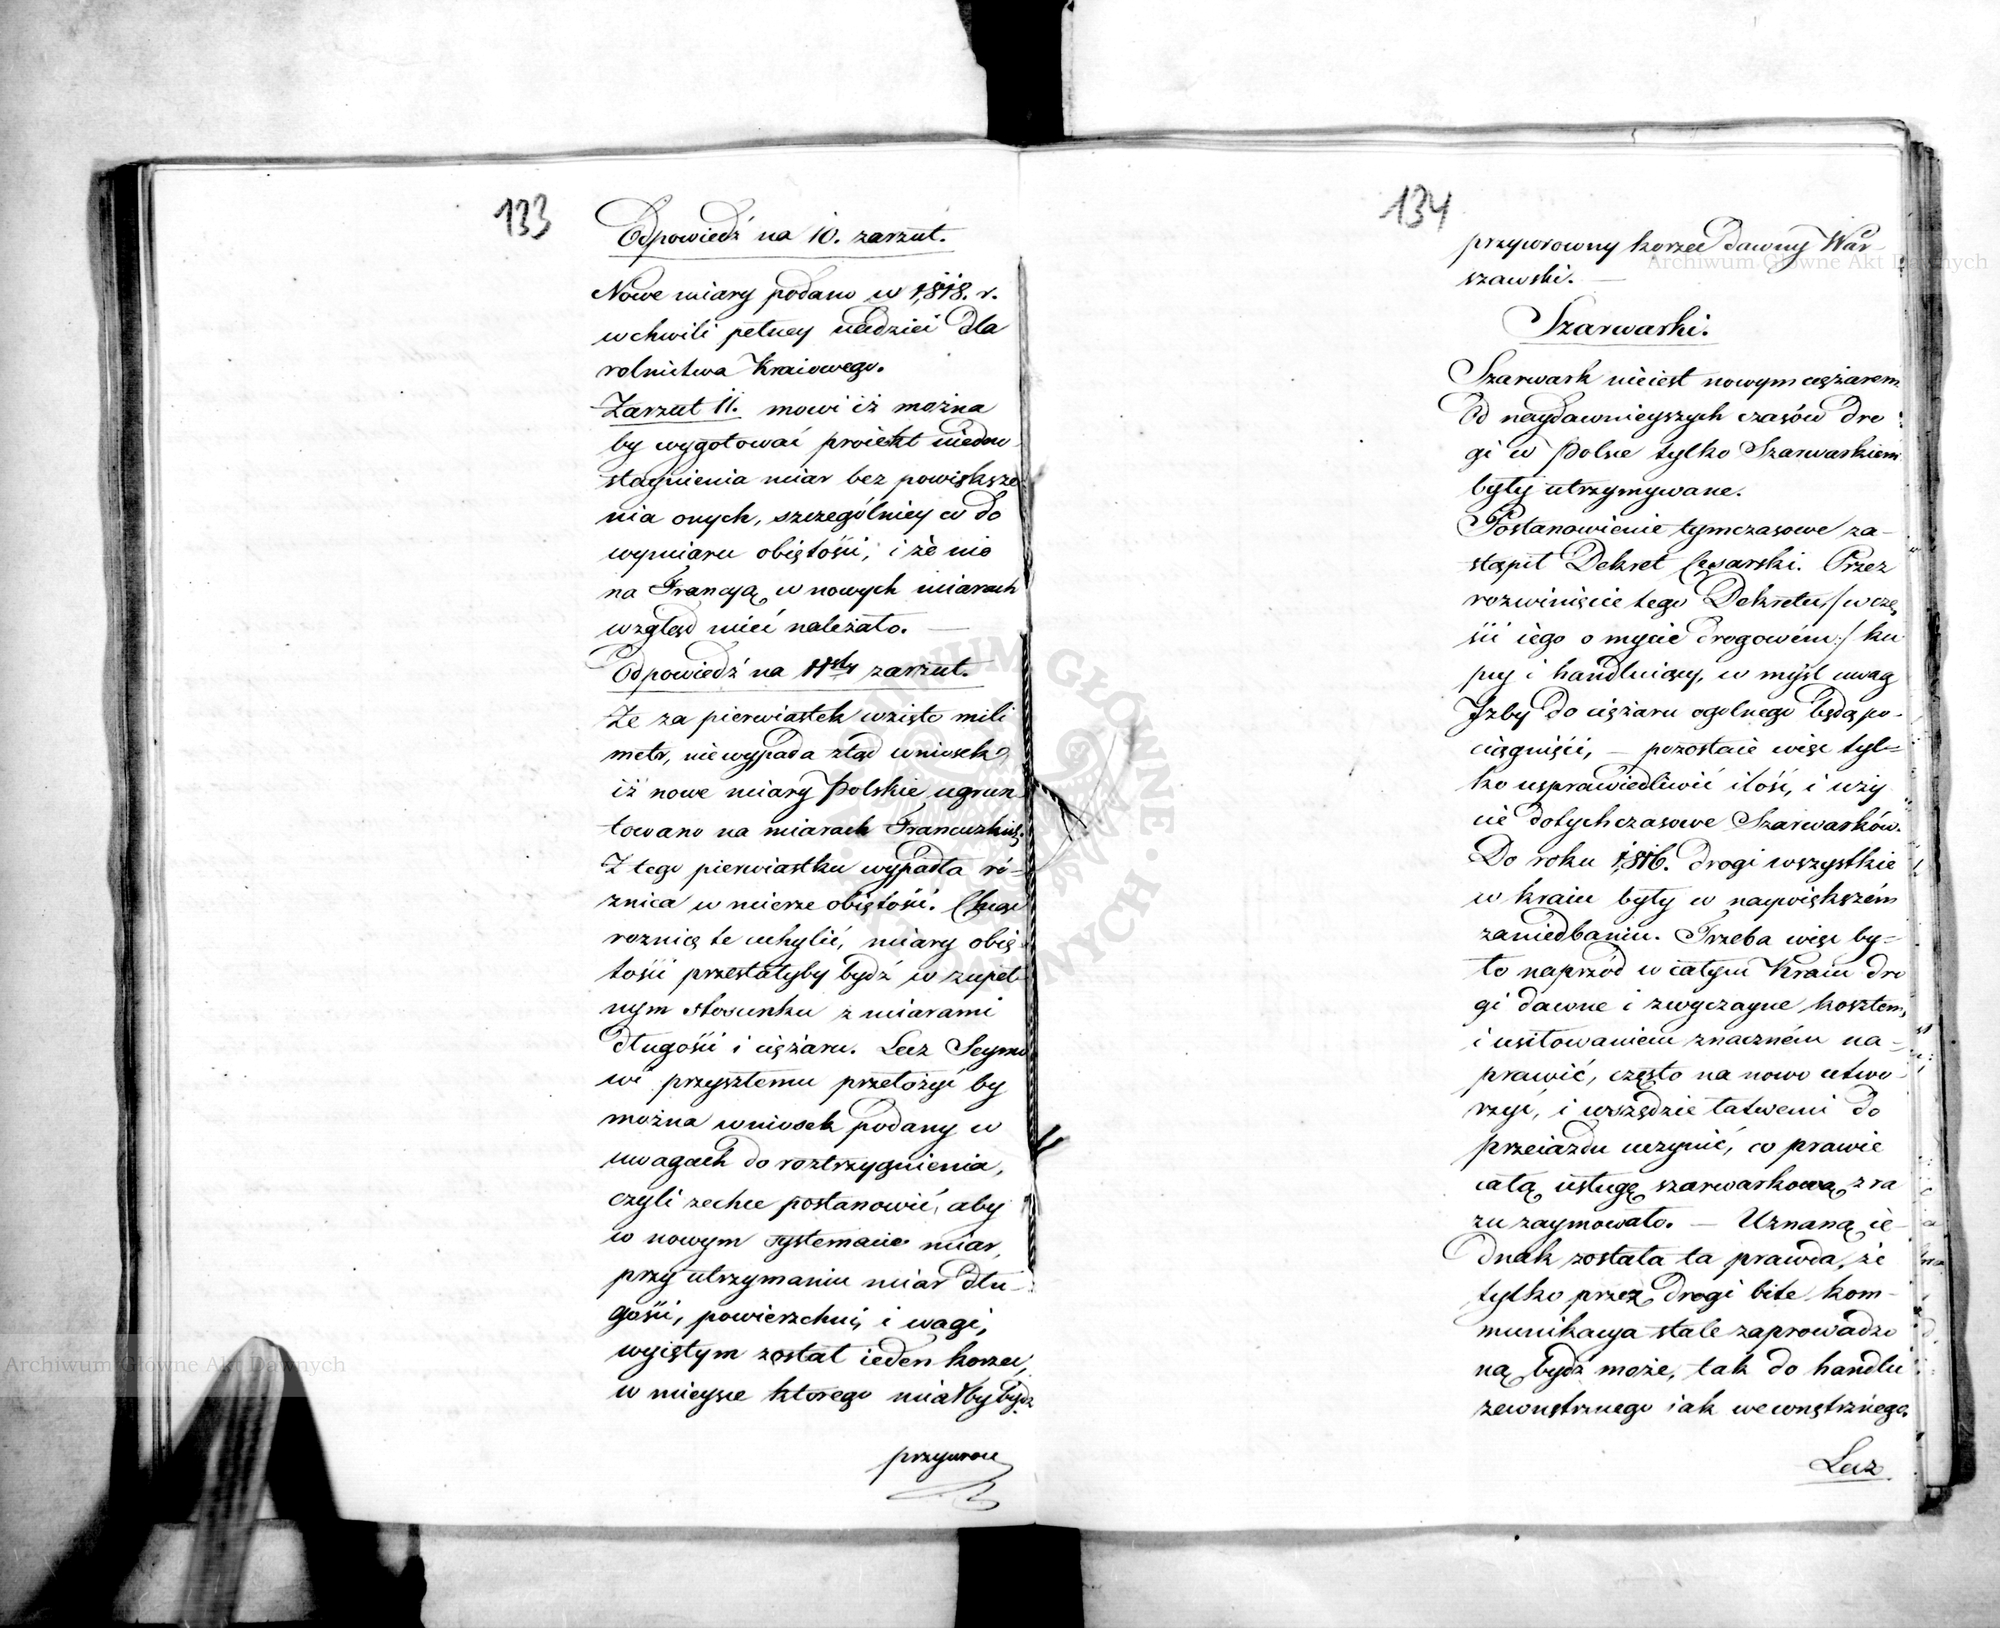 133
Odpowiedź na 10. zarzut.
Nowe miary podano w 1818. r.
w chwili pełney nadziei dla
rolnictwa Kraiowego.
Zarzut 11. mowi iż można
by wygotować proiekt
staynienia miar bez powiększe
nia onych, szczególniey co do
wymiaru obiętości, i że nie
na Francyą w nowych miarach
wzgląd mieć należało. —
Odpowiedź na 11sty zarzut.
Że za pierwiastek wzięto mili
metr, nie wypada ztąd wniosek,
iż nowe miary Polskie ugrun
towano na miarach Francuzkich.
Z tego pierwiastku wypadła ró-
żnica w mierze obiętości. Chcąc
roznicę te uchylić, miary obię
tości przestałyby bydź w zupeł
nym stosunku z miarami
długości i ciężaru. Lecz Seymo
wi przyszłemu przełożyć by
można wniosek podany w
uwagach do roztrzygnienia,
czyli zechce postanowić, aby
w nowym systemacie miar,
przy utrzymaniu miar dłu-
gości, powierzchni, i wagi,
wyiętym został ieden korzec,
w mieysce ktorego miałby bydź
przywroc
134
przywrocony korzec dawny War
szawski. —
Szarwarki.
Szarwark nieiest nowym ciężarem
Od naydawnieyszych czasów dro
gi w Polsce tylko Szarwarkiem
były utrzymywane.
Postanowienie tymczasowe za-
stąpił Dekret Cesarski. Przez
rozwinięcie tego Dekretu, /: w czę
ści iego o mycie drogowém :/ ku
pcy i handluiący, w myśl uwag
Izby do ciężaru ogolnego będą po-
ciągnięci, — pozostaie więc tyl=
ko usprawiedliwić ilość, i uży
cie dotychczasowe Szarwarków.
Do roku 1816. drogi wszystkie
w kraiu były w naywiększém
zaniedbaniu. Trzeba więc by=
ło naprzód w całym Kraiu dro
gi dawne i zwyczayne kosztem,
i usiłowaniem znaczném na-
prawić, często na nowo utwo-
rzyć, i wszędzie łatwemi do
przeiazdu uczynić, co prawie
całą usługę szarwarkową zra
zu zaymowało. — Uznaną ie-
dnak została ta prawda, że
tylko przez drogi bite kom-
munikacya stale zaprowadzo
ną bydź może, tak do handlu
zewnętrznego iak wewnętrznego.
Lecz
Archiwum Główne Akt Dawnych
Archiwum Główne Akt Dawnych